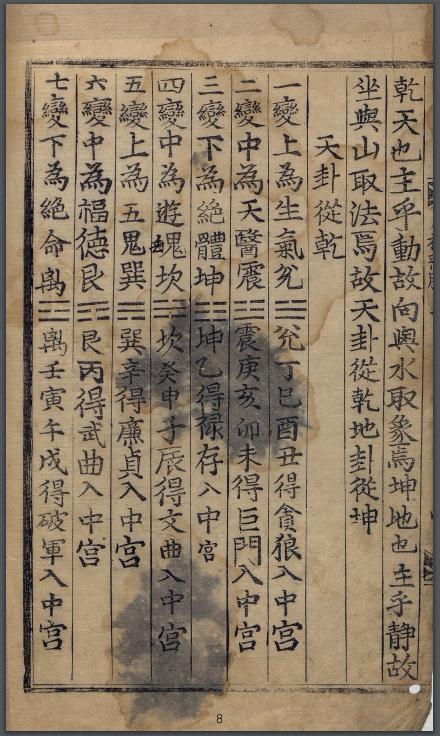 乾天也主乎動故向與水取象焉坤地也主乎靜故
坐與山取法焉故天卦從乾地卦從坤
天卦從乾
一變上為生氣兊☱兊丁巳酉丑得貪狼入中宮
二變中為天醫震☳震庚亥卯未得巨門入中宮
三變下為絶體坤☷坤乙得祿存入中宮
四變中為遊魂坎☵坎癸申子辰得文曲入中宮
五變上為五鬼巽☴巽辛得廉貞入中宮
六變中為福德艮☶艮丙得武曲入中宮
七變下為絶命離☲離壬寅午戌得破軍入中宮
8